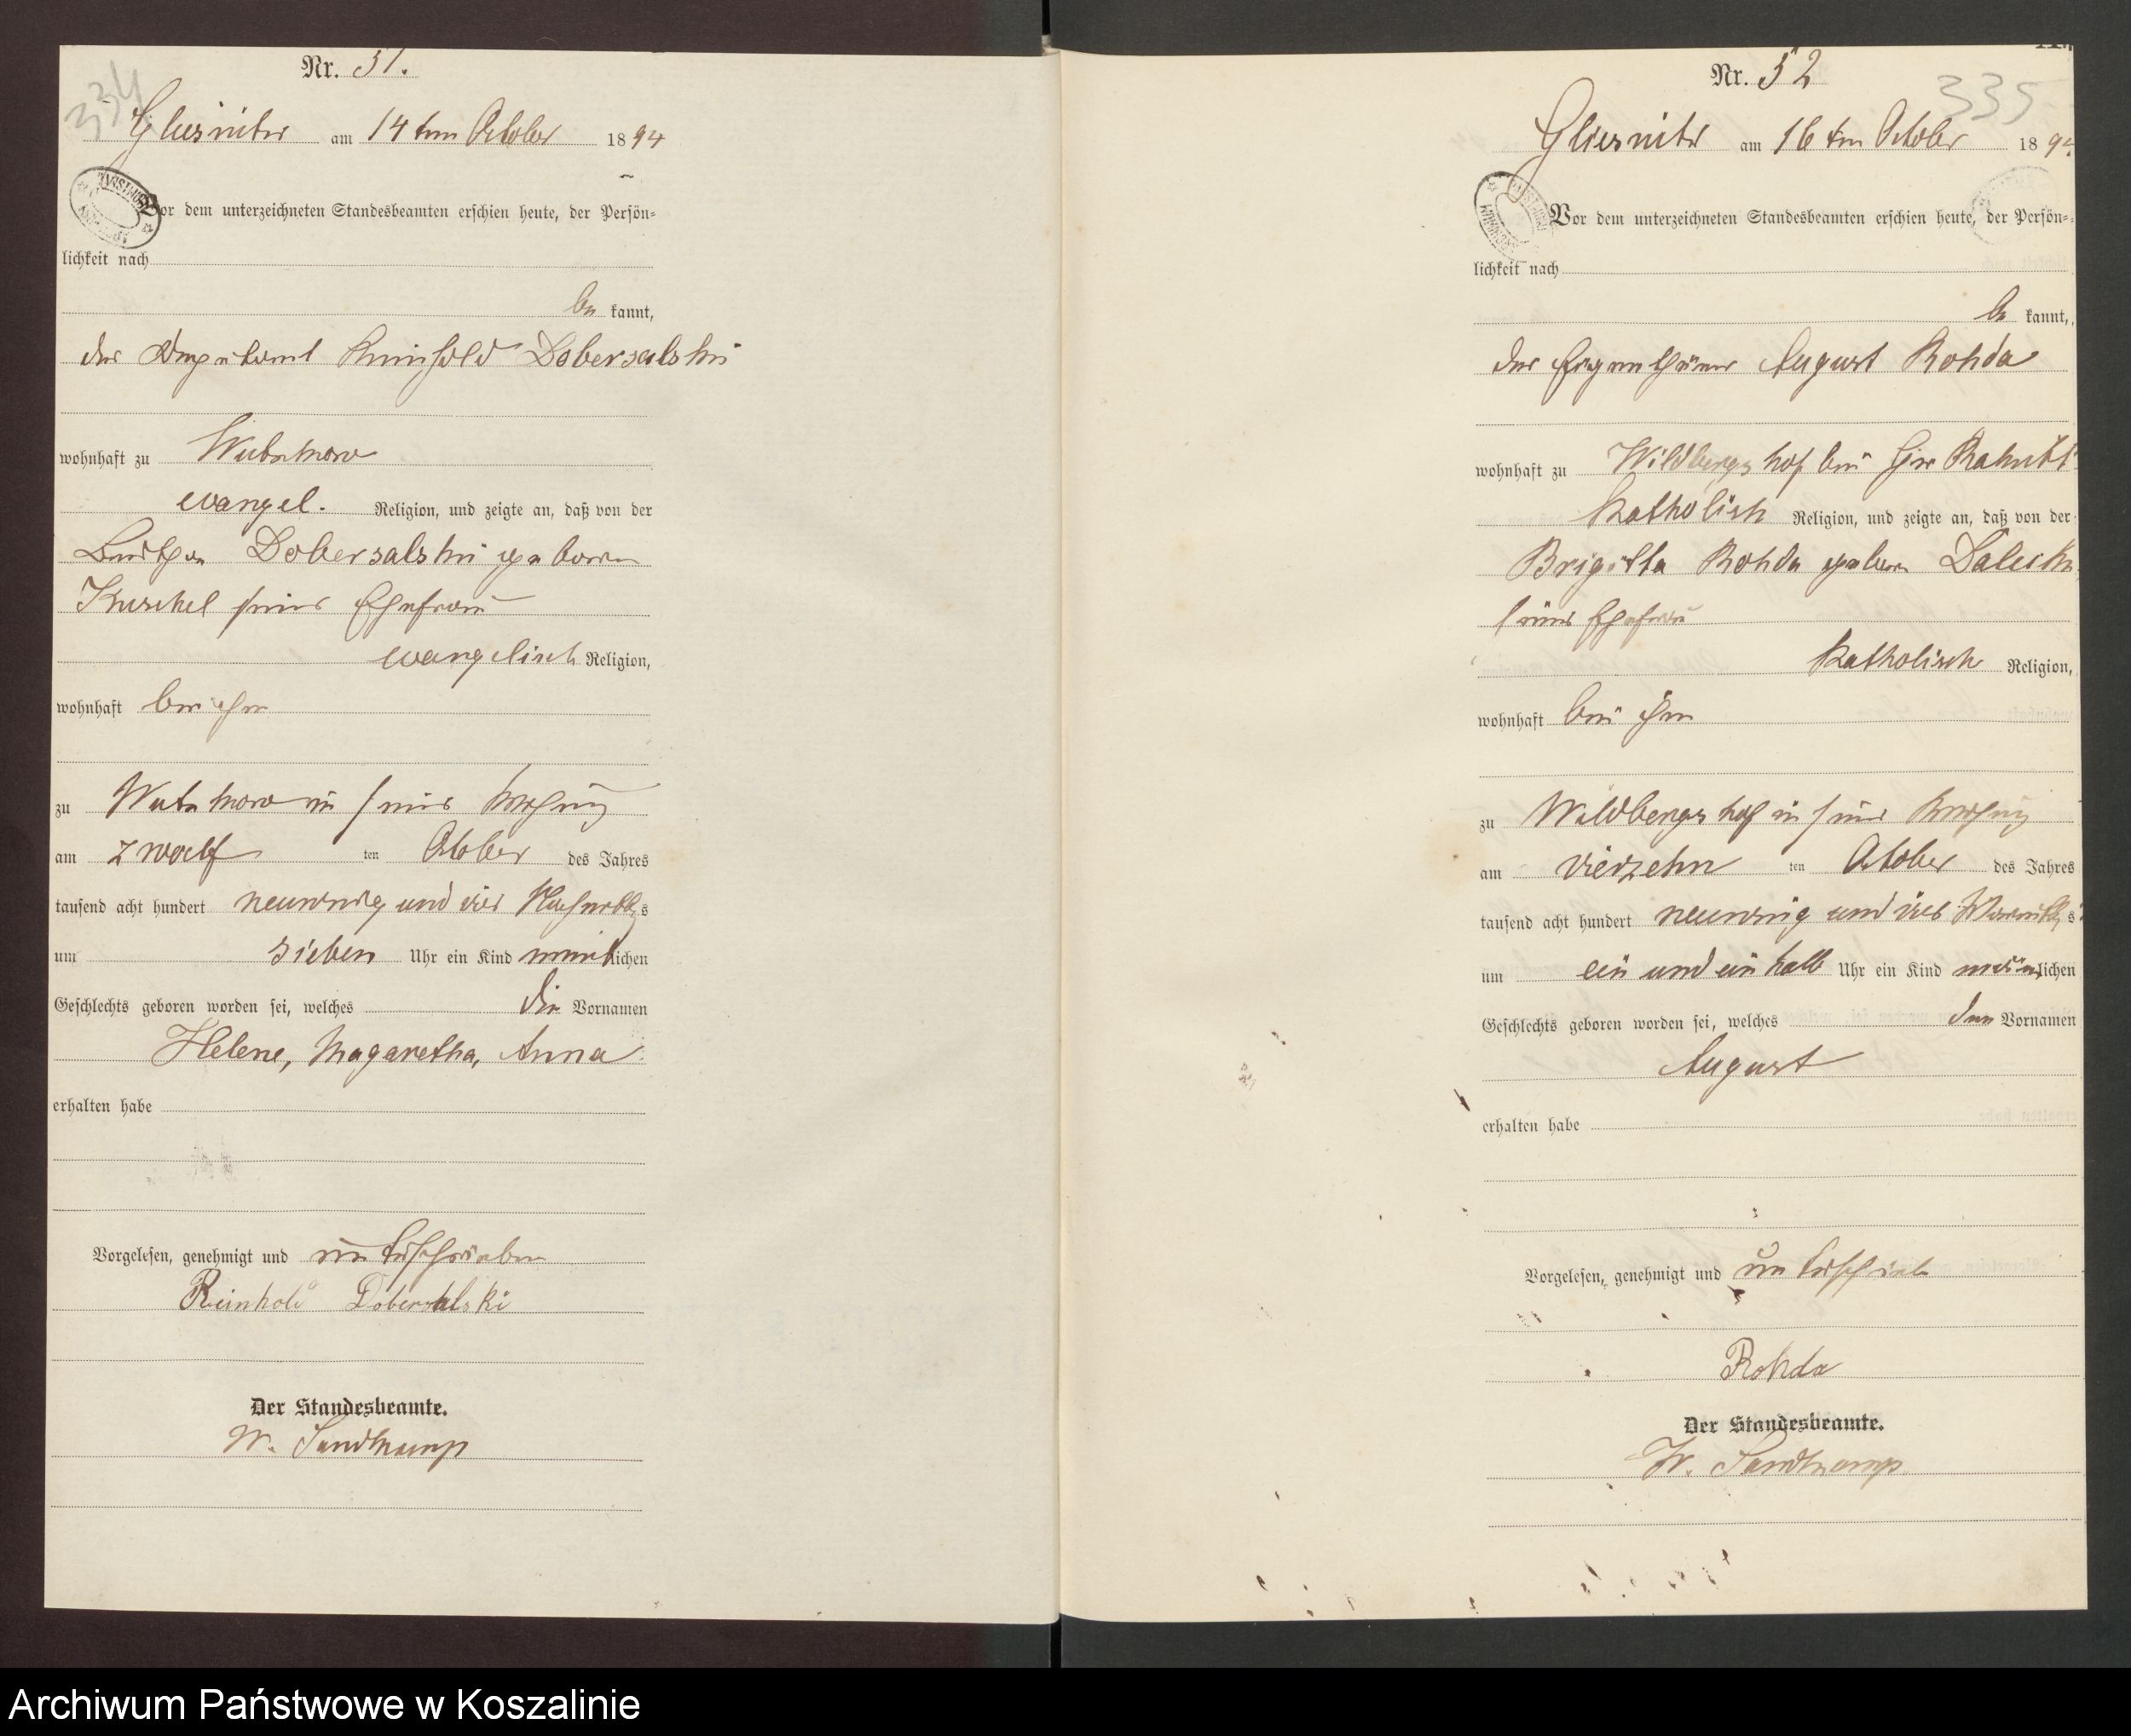 334
Nr. 51.
Gliesnitz am 14ten October 1894
Vor dem unterzeichneten Standesbeamten erschien heute, der Persön=
lichkeit nach
be kannt,
der Deputant Reinhold Dobersalski
wohnhaft zu Wutzkow
evangel. Religion, und zeigte an, daß von der
Dobersalski geboren
Kuschel seiner Ehefrau
evangelisch Religion,
wohnhaft bei ihm
zu Wutzkow in seiner Wohnung
am zwölf ten October des Jahres
tausend acht hundert neunzig und vier Nachmittags
um sieben Uhr ein Kind weiblichen
Geschlechts geboren worden sei, welches die Vornamen
Helene, Magaretha, Anna
erhalten habe
Vorgelesen, genehmigt und unterschrieben
Reinhold Dobersalski
Der Standesbeamte.
W. Sandkamp
335
Nr. 52
Gliesnitz am 16ten October 1894
Vor dem unterzeichneten Standesbeamten erschien heute, der Persön=
lichkeit nach
be kannt,
der Eigenthümer August Rohda
wohnhaft zu Wildbergshof bei Gr Rakitt
Katholisch Religion, und zeigte an, daß von der
Brigitta Rohda geboren
seiner Ehefrau
Katholisch Religion,
wohnhaft bei ihm
zu Wildbergshof in seiner Wohnung
am vierzehn ten October des Jahres
tausend acht hundert neunzig und vier Vormittags
um ein und ein halb Uhr ein Kind männlichen
Geschlechts geboren worden sei, welches den Vornamen
August
erhalten habe
Vorgelesen, genehmigt und unterschrieb
Rohda
Der Standesbeamte.
W. Sandkamp
Archiwum Państwowe w Koszalinie